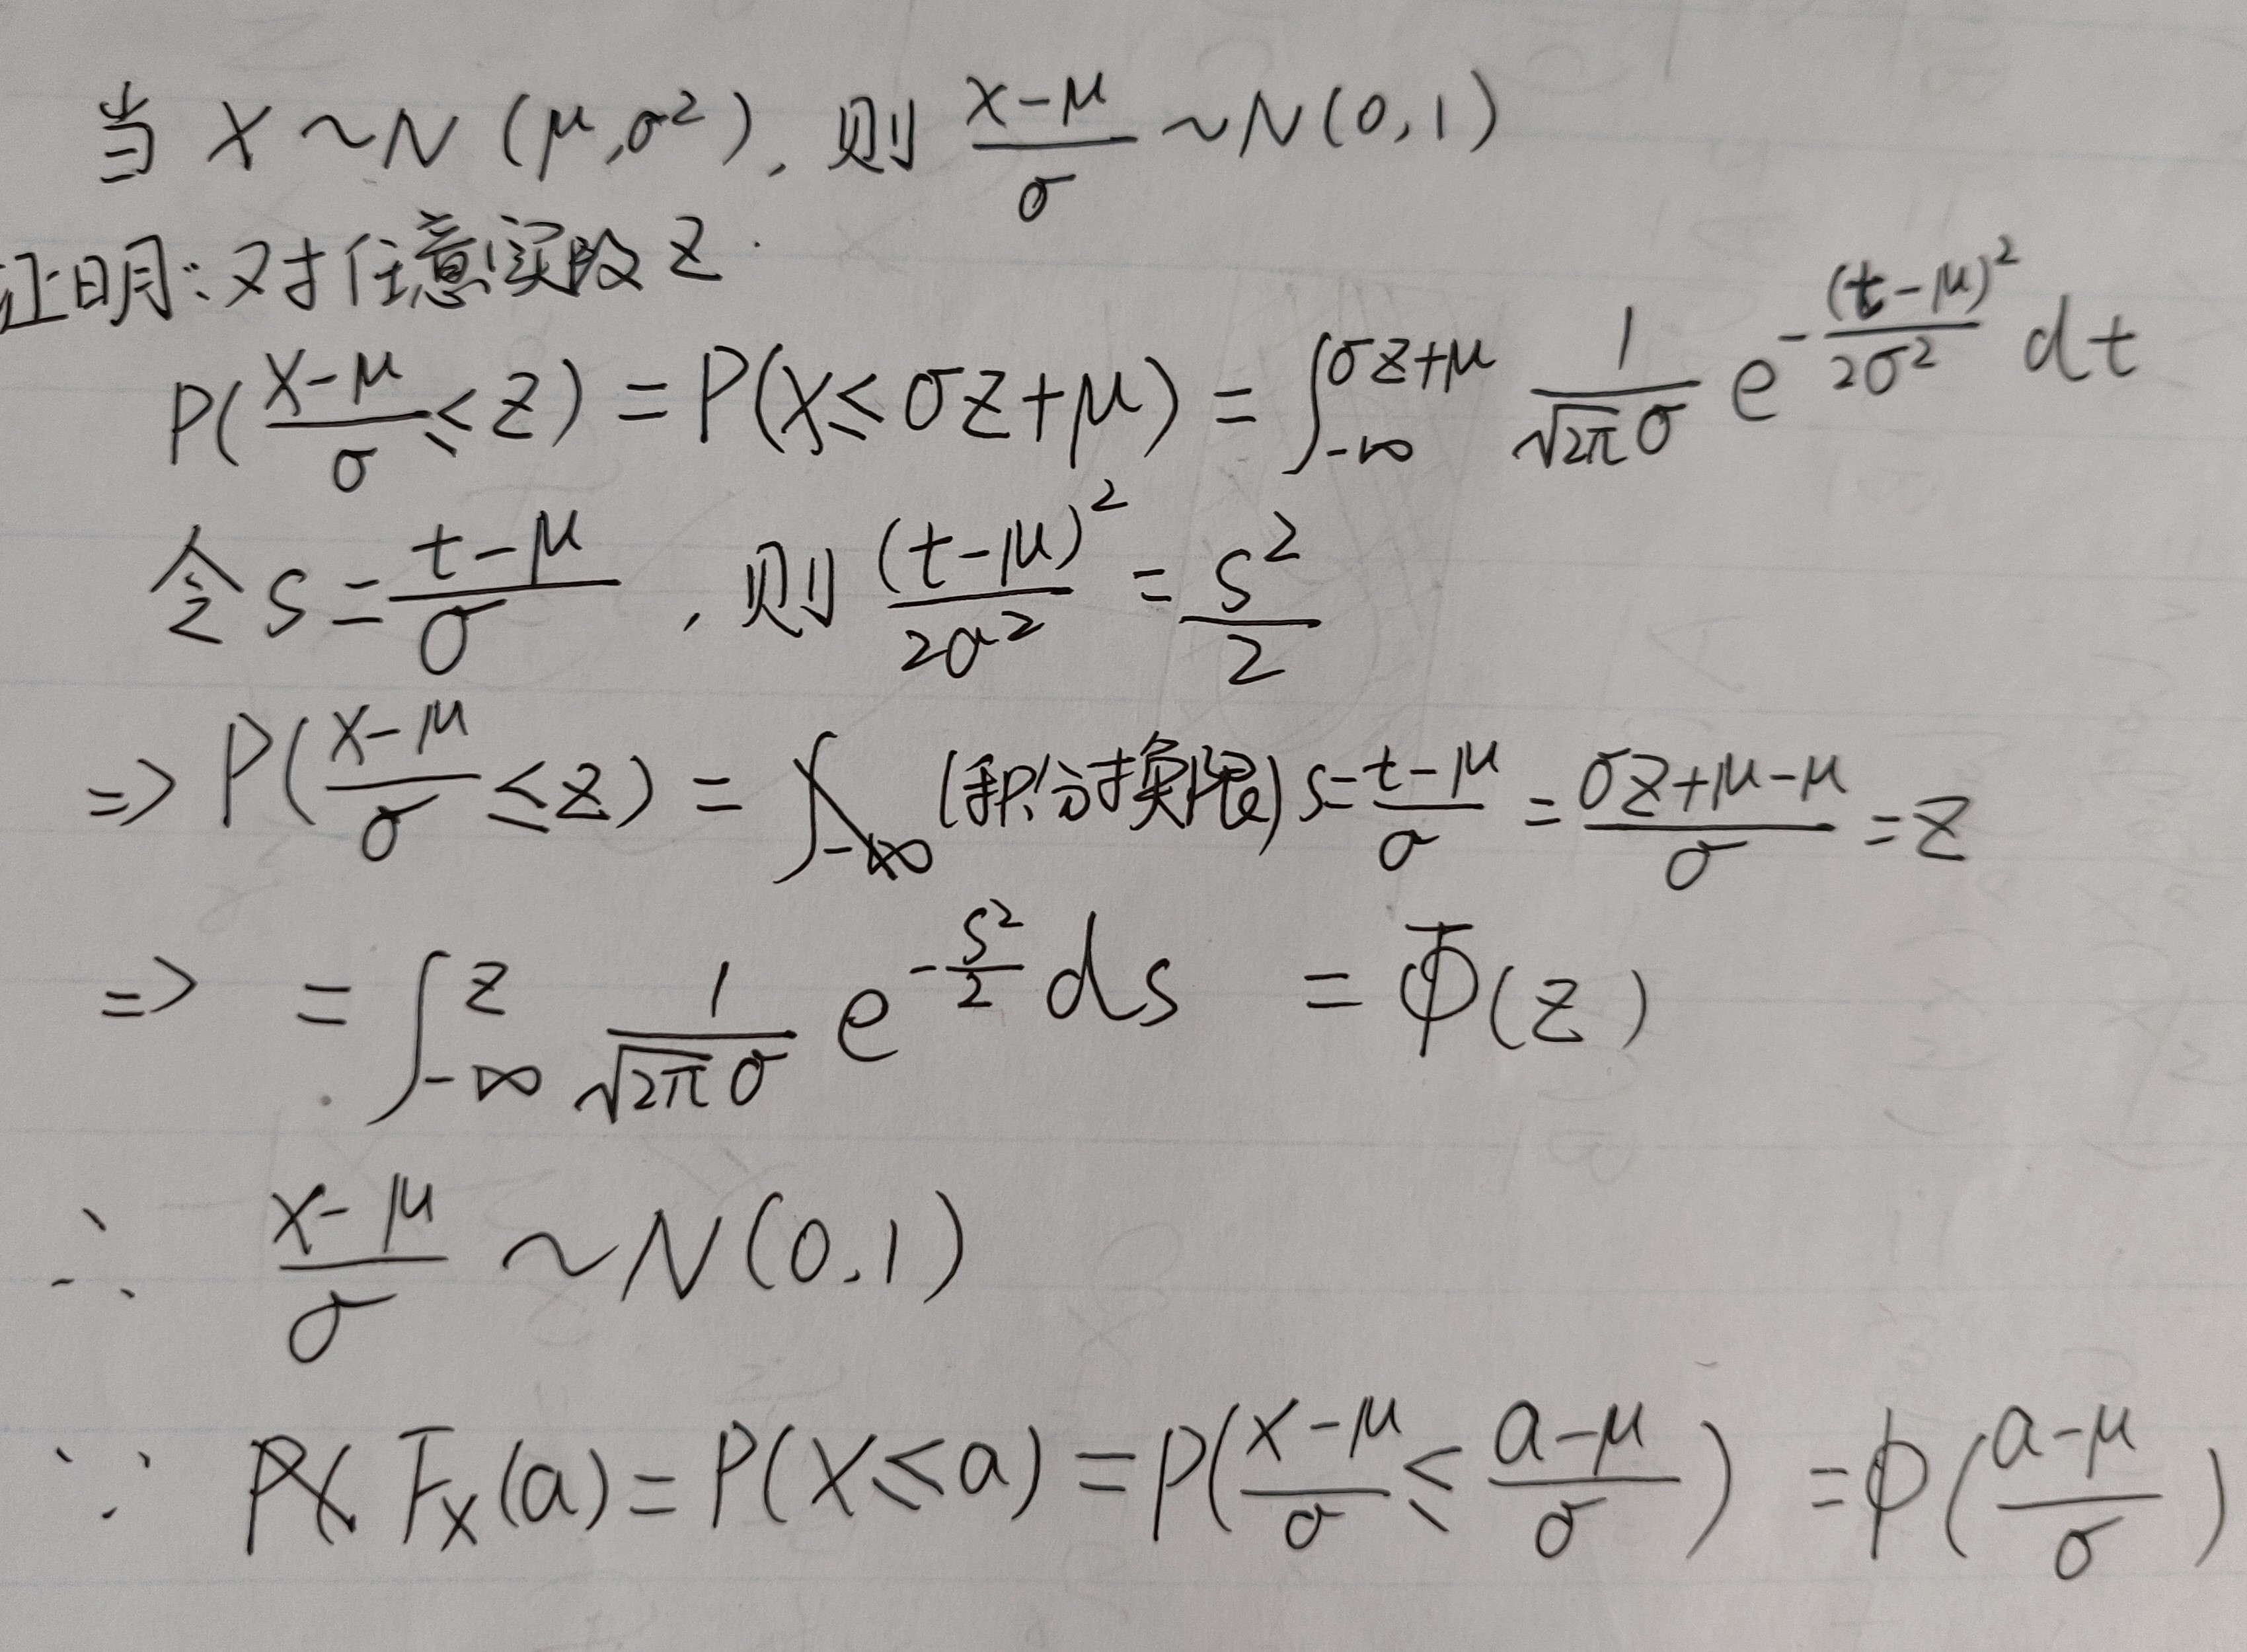 当 X ~ N (μ,σ²), 则 (X-μ)/σ ~ N(0,1)
证明:对任意实数 z
P((X-μ)/σ ≤ z) = P(X ≤ σz+μ) = ∫_{-∞}^{σz+μ} 1/(√(2π)σ) e^{-(t-μ)²/(2σ²)} dt
令 s = (t-μ)/σ , 则 (t-μ)²/(2σ²) = s²/2
=> P((X-μ)/σ ≤ z) = (积分换限) s = (t-μ)/σ = (σz+μ-μ)/σ = z
=> = ∫_{-∞}^{z} 1/(√(2π)σ) e^{-s²/2} ds = Φ(z)
∴ (X-μ)/σ ~ N(0,1)
∵ F_X(a) = P(X ≤ a) = P((X-μ)/σ ≤ (a-μ)/σ) = Φ((a-μ)/σ)